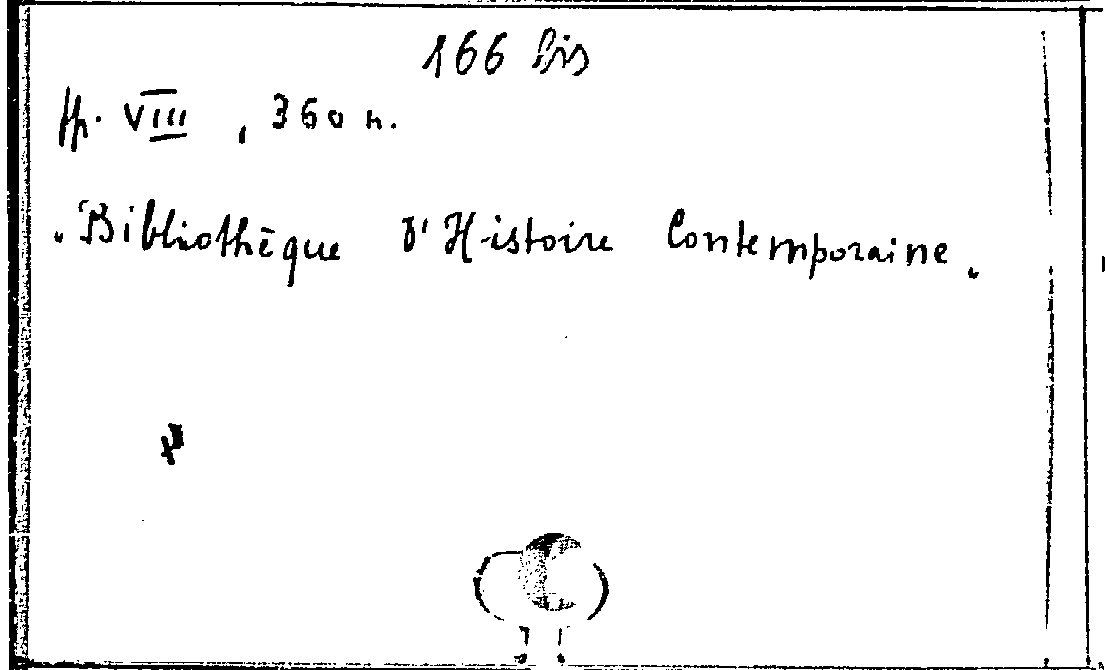 166 bis
pp. VIII, 360 n.
"Bibliothèque d'Histoire Contemporaine"